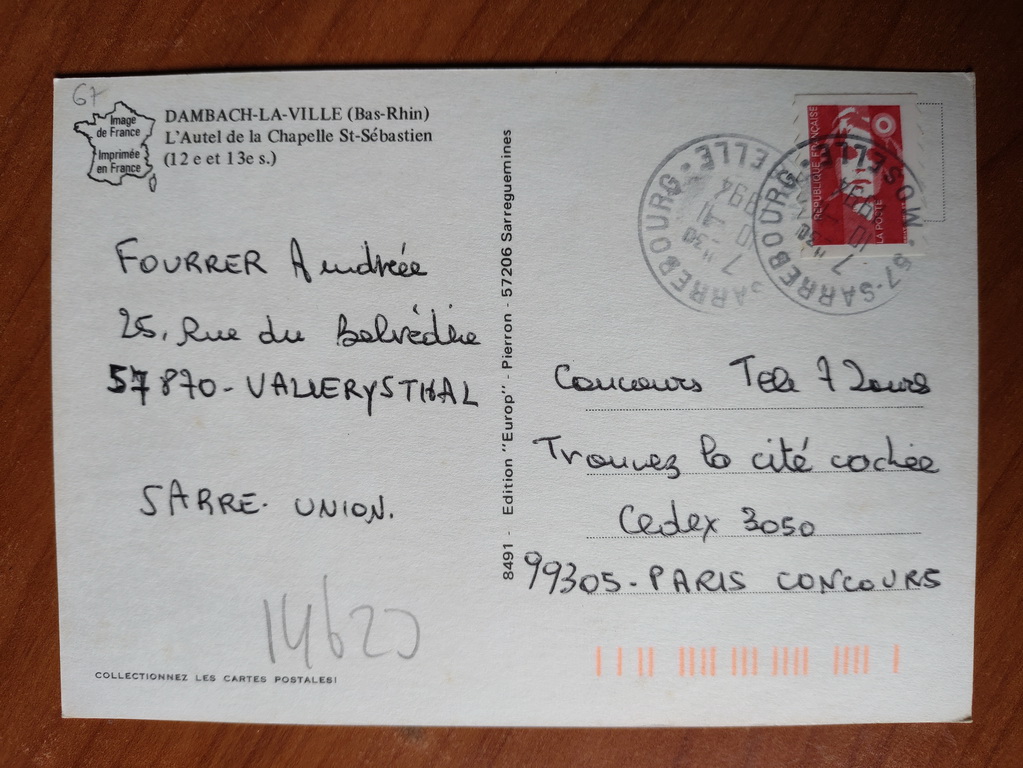 67
Image
de France
Imprimée
en France
DAMBACH-LA-VILLE (Bas-Rhin)
L'Autel de la Chapelle St-Sébastien
(12 e et 13e s.)
FOURRER Andrée
25, Rue du Belvédère
57 870 - VALLERYSTHAL
SARRE-UNION.
14620
COLLECTIONNEZ LES CARTES POSTALES!
8491 - Edition "Europ" - Pierron - 57206 Sarreguemines
RÉPUBLIQUE FRANÇAISE
LA POSTE
57-SARREBOURG-MOSELLE
11-30
7 11
1994
Concours Télé 7 Jours
Trouvez la cité cachée
Cedex 3050
99305 - PARIS CONCOURS